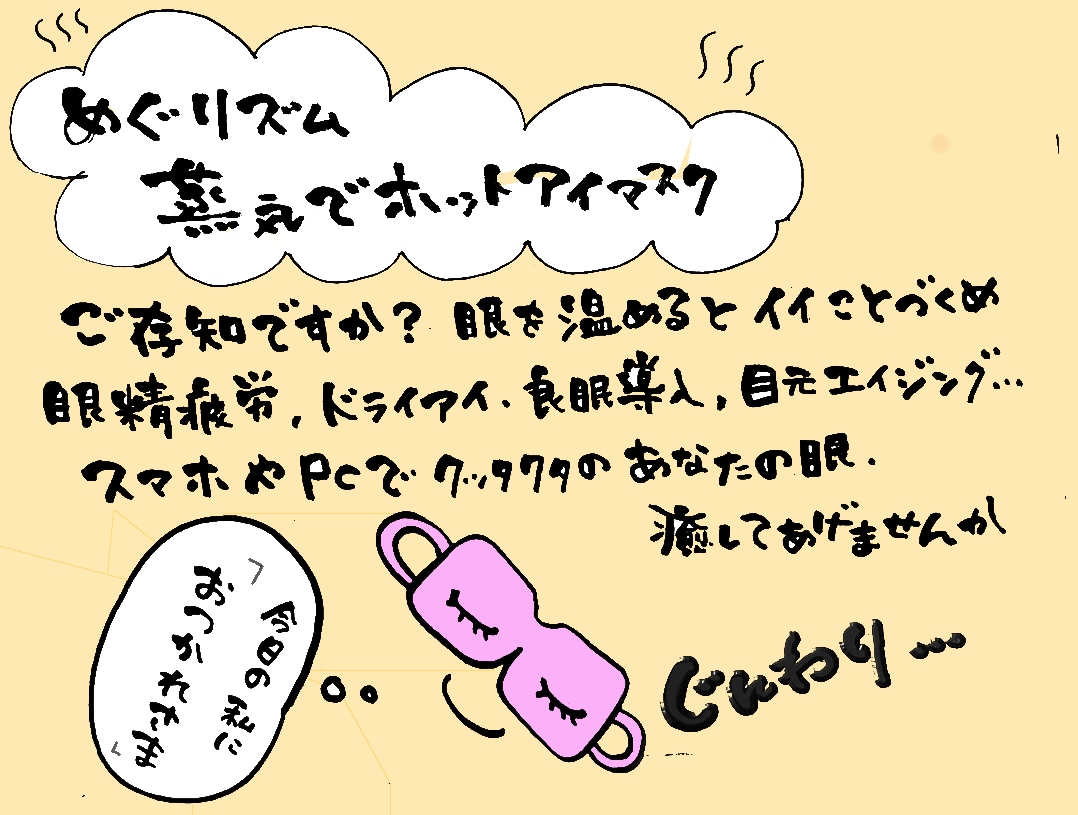 めぐりズム
蒸気でホットアイマスク
ご存知ですか？眼を温めるとイイことづくめ
眼精疲労，ドライアイ．良眠導入，目元エイジング…
スマホやPCでクッタクタのあなたの眼．
癒してあげませんか
「今日の私に
おつかれさま」
じんわり…